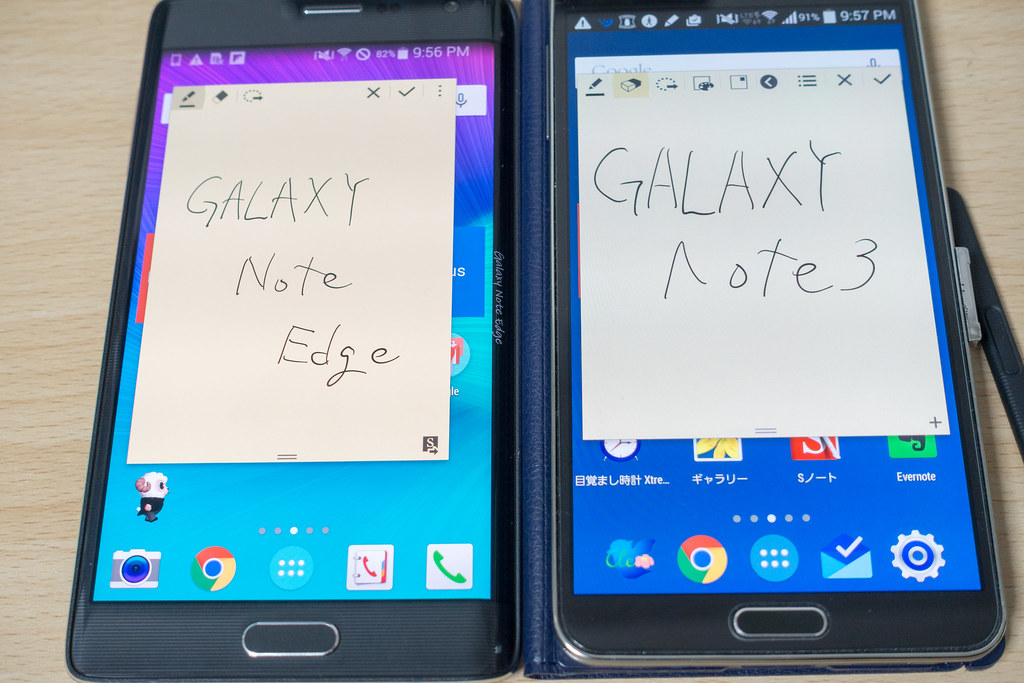 82% 9:56 PM
GALAXY
Note
Edge
us
Galaxy Note Edge
le
91% 9:57 PM
Google
GALAXY
Note 3
目覚まし時計 Xtre...
ギャラリー
Sノート
Evernote